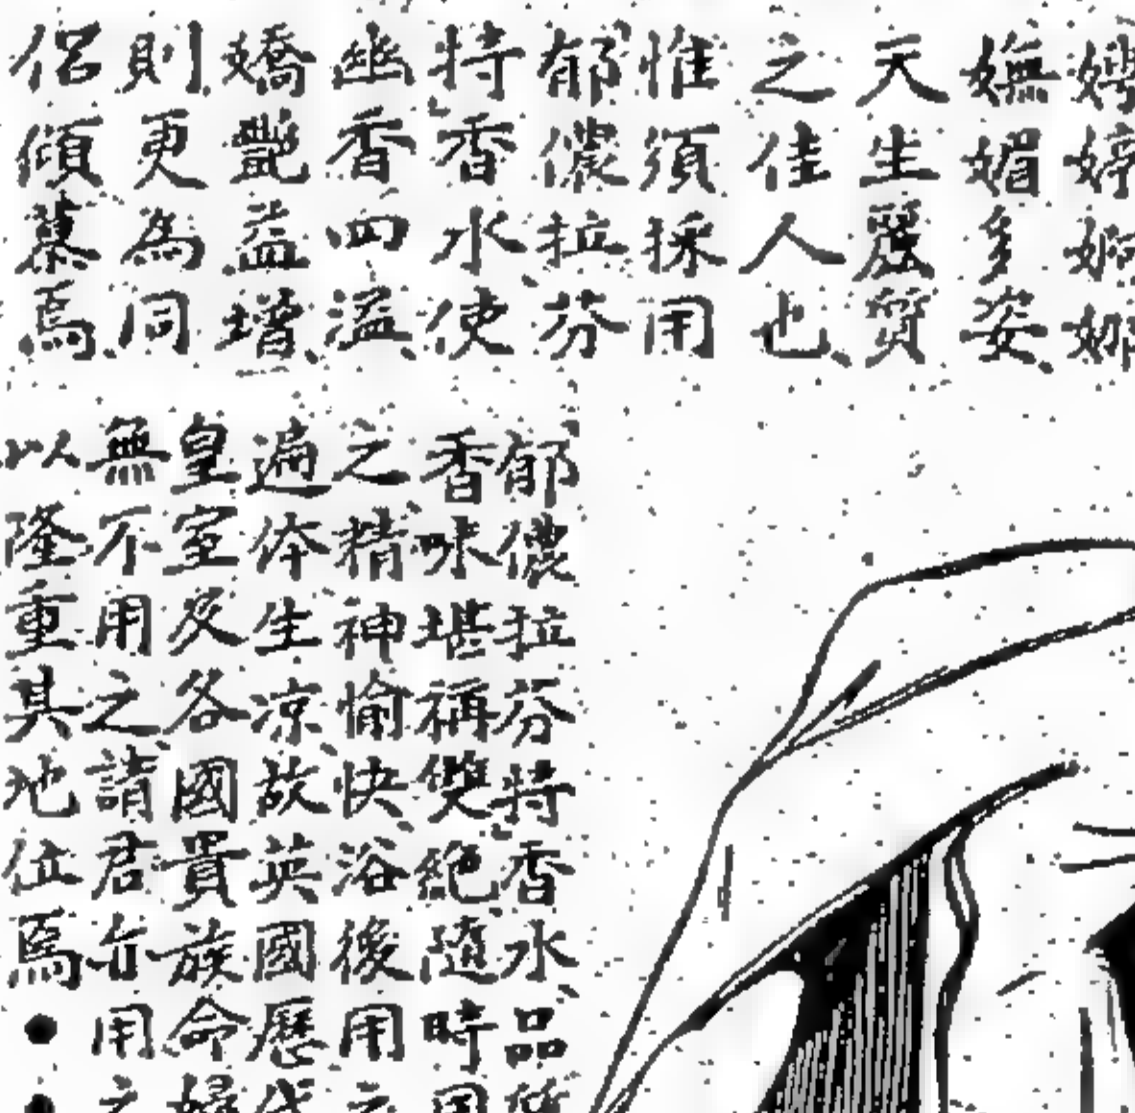 娉婷婀娜
嫵媚多姿
天生麗質
之佳人也
惟須採用
郁儂拉芬
特香水使
幽香四溢
嬌艷益增
則更為同
侶傾慕焉
郁儂拉芬特香水品質
香味堪稱雙絕隨時用
之精神愉快浴後用之
遍体生凉故英國歷代
皇室及各國貴族命婦
無不用之請君亦用之
以隆重其地位焉